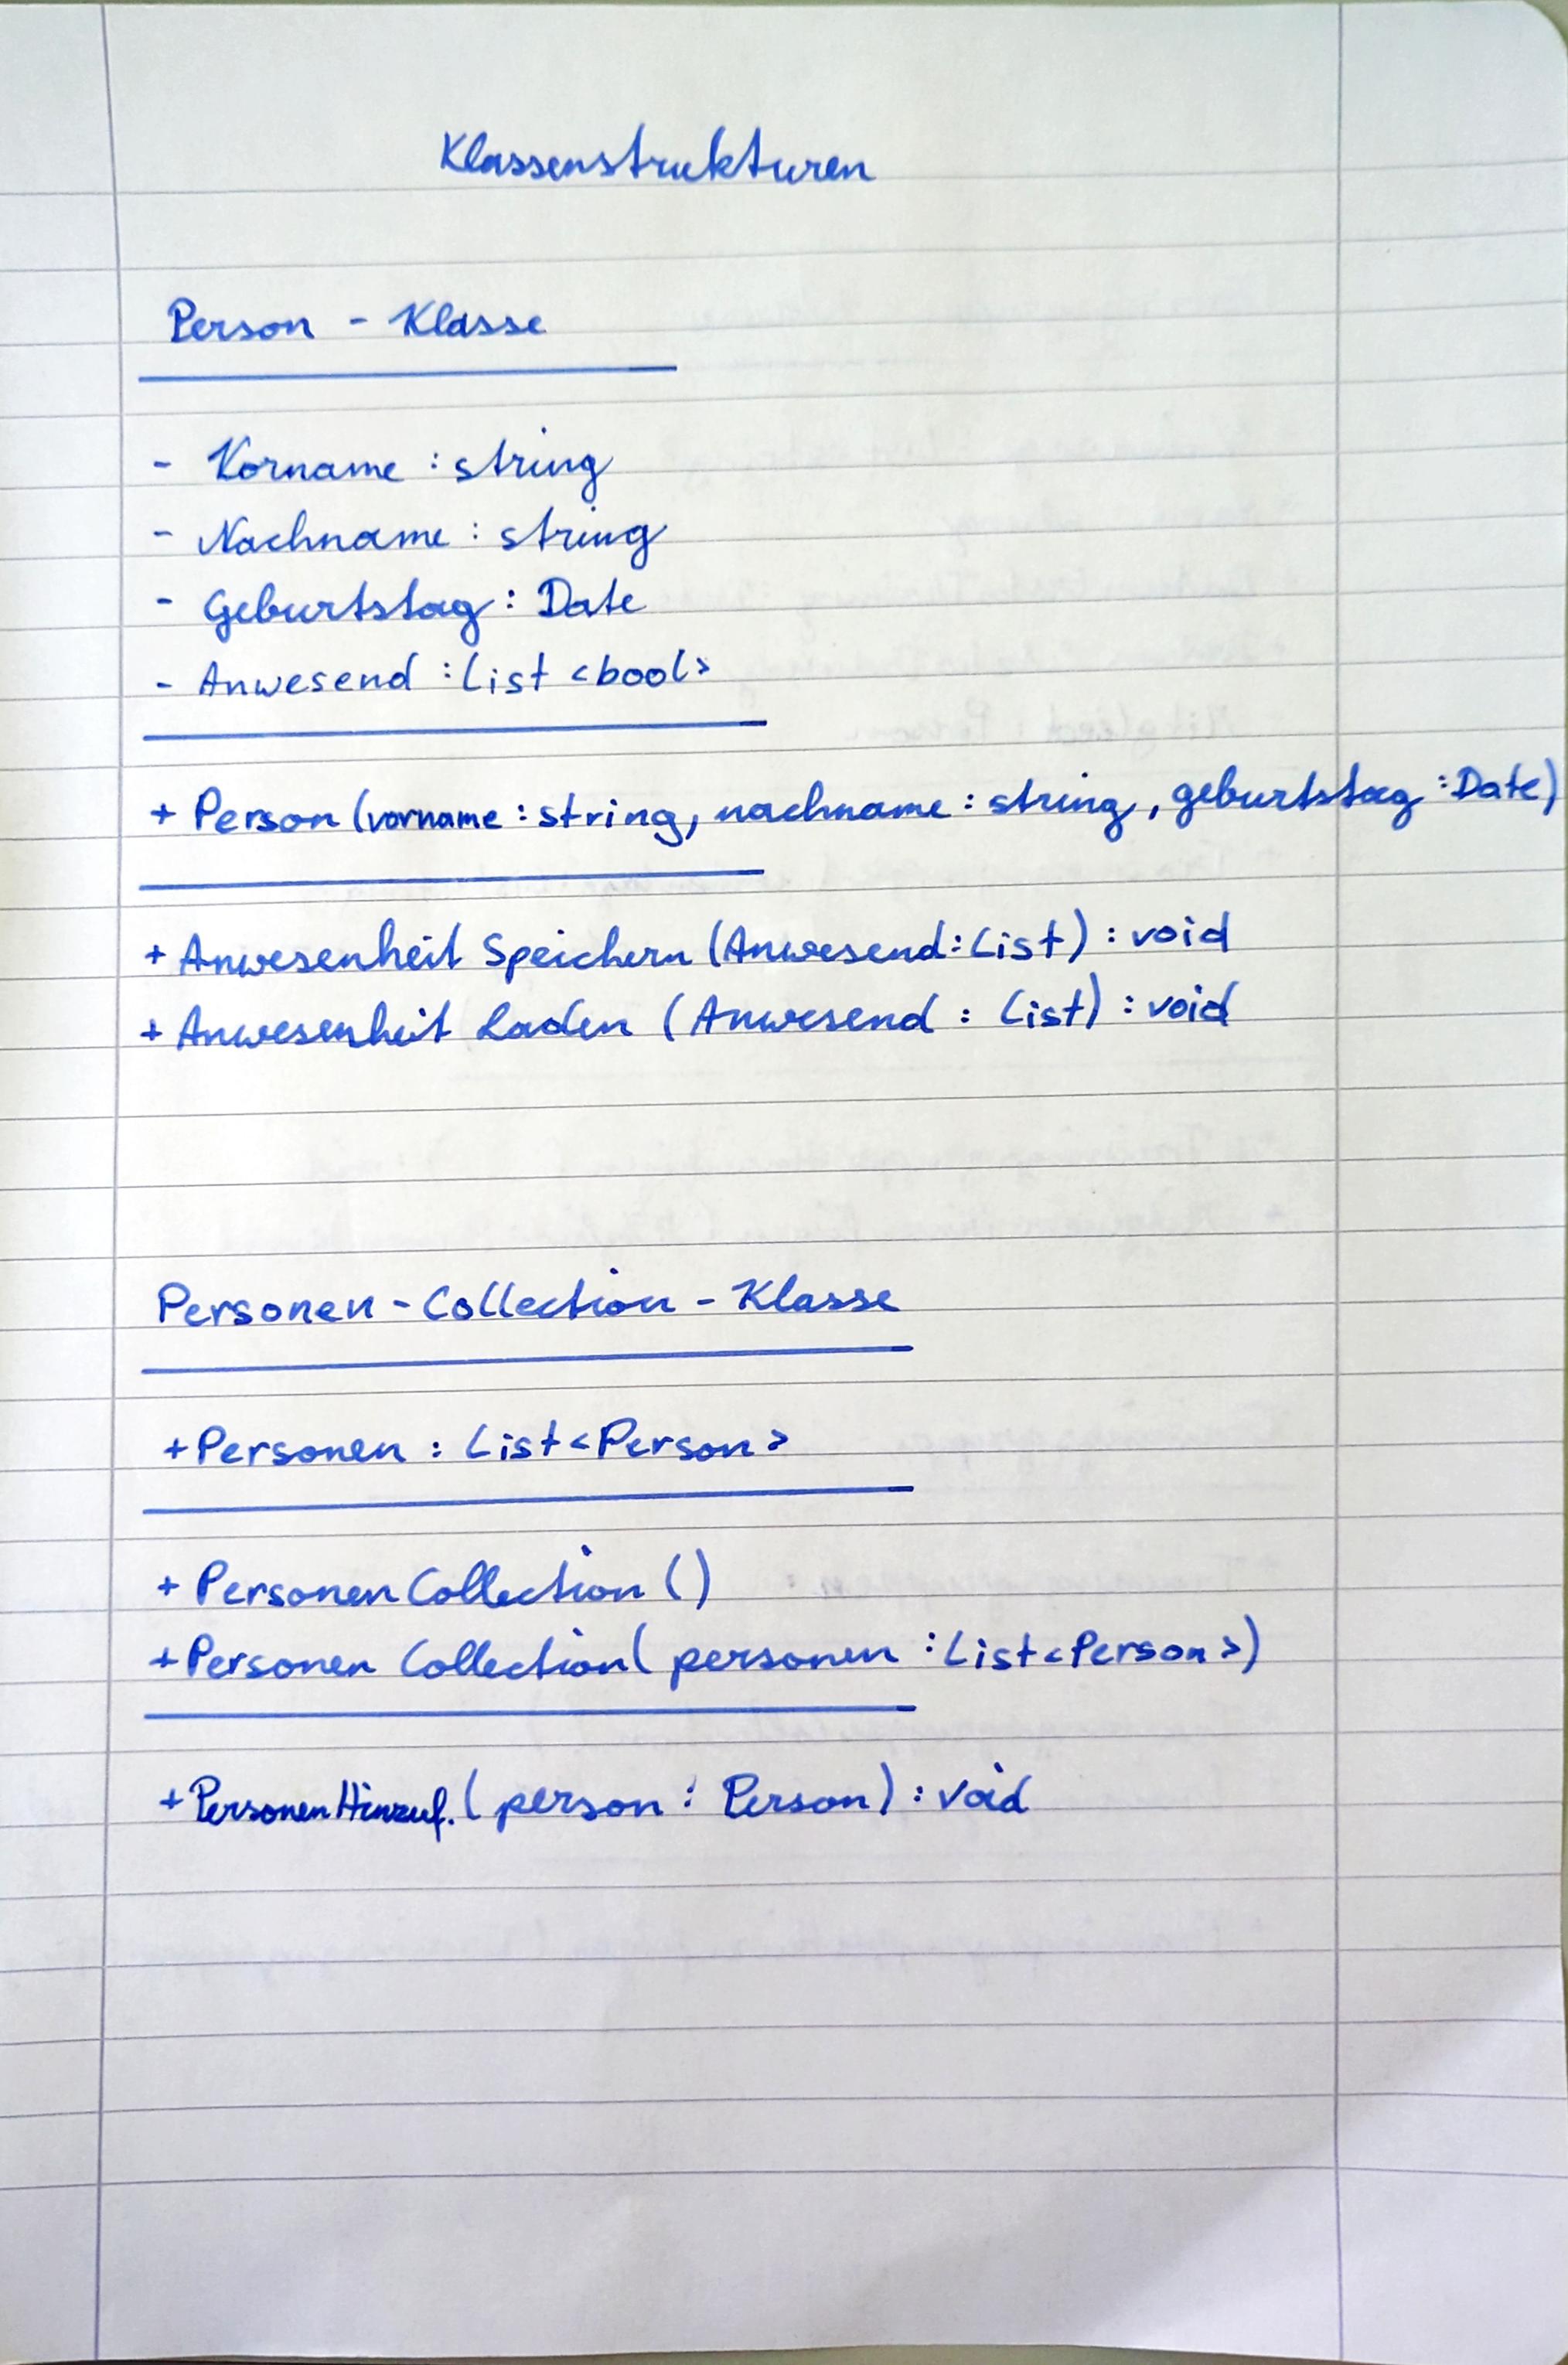 Klassenstrukturen
Person - Klasse
- Vorname : string
- Nachname : string
- Geburtstag : Date
- Anwesend : List <bool>
+ Person (vorname : string, nachname : string, geburtstag : Date)
+ Anwesenheit Speichern (Anwesend : List) : void
+ Anwesenheit Laden (Anwesend : List) : void
Personen - Collection - Klasse
+ Personen : List<Person>
+ Personen Collection ()
+ Personen Collection( personen : List<Person>)
+ PersonenHinzuf. ( person : Person) : void